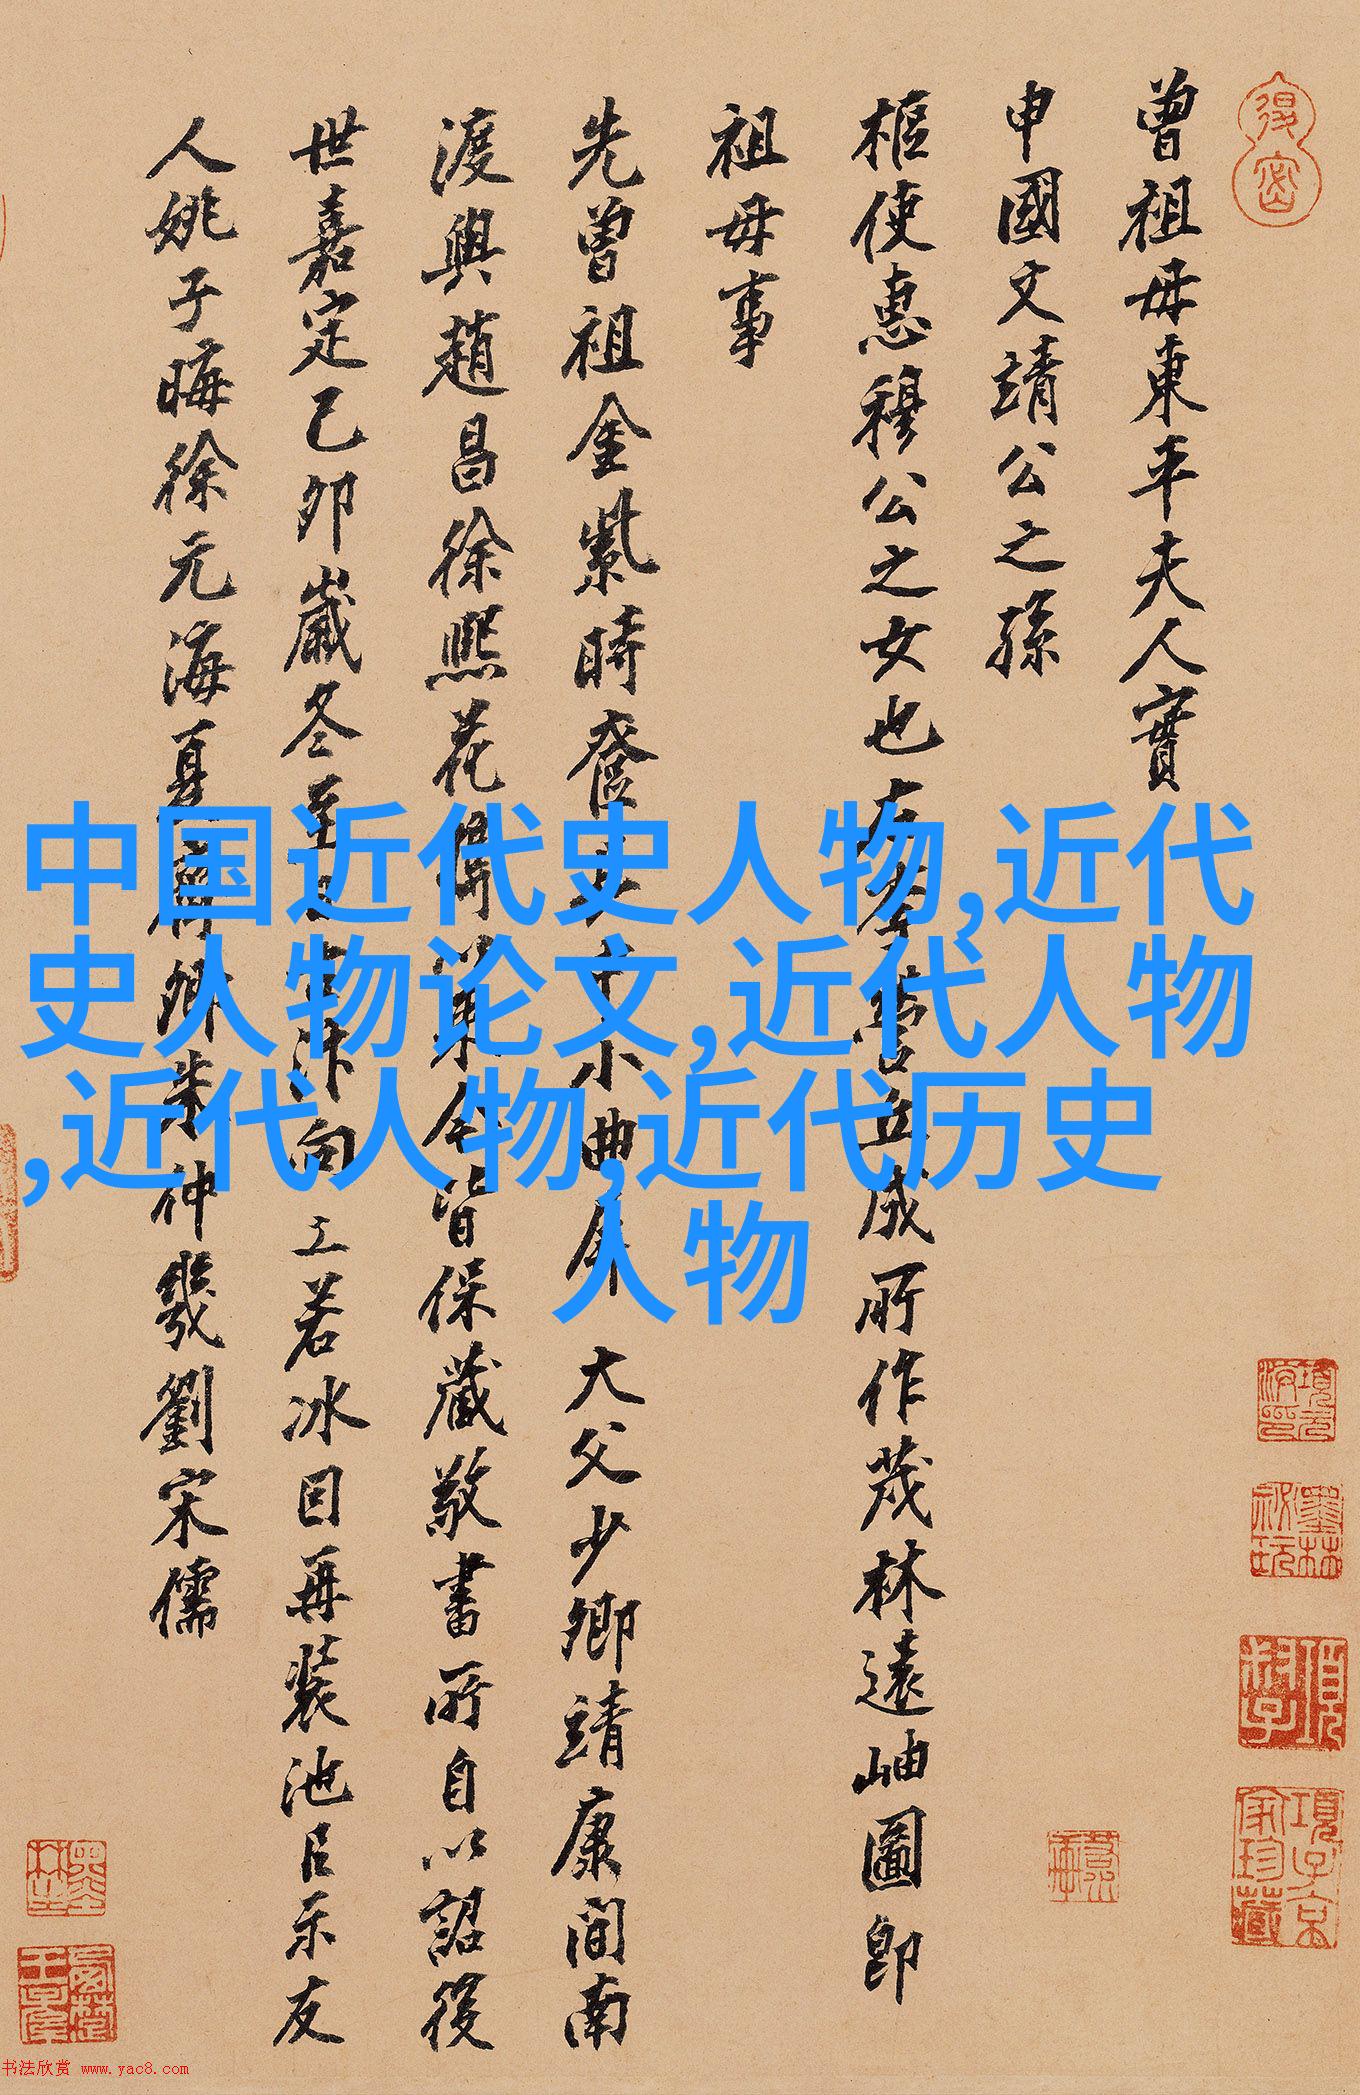 曾祖母東平夫人實
申國文靖公之孫
樞使惠穆公之女也
營丘咸所作茂林遠岫圖即
祖母事
先曾祖金紫時奩
小曲屏
大父少卿靖康間南
渡與趙昌徐熙花
皆保藏敬書所自以詔後
世嘉定己卯歲冬至
向工若冰因再裝池呂示友
人姚子晦徐元海夏
仲幾劉宋儒
中国近代史人物,近代
史人物论文,近代人物
,近代人物,近代历史
人物
书法欣赏 www.yac8.com